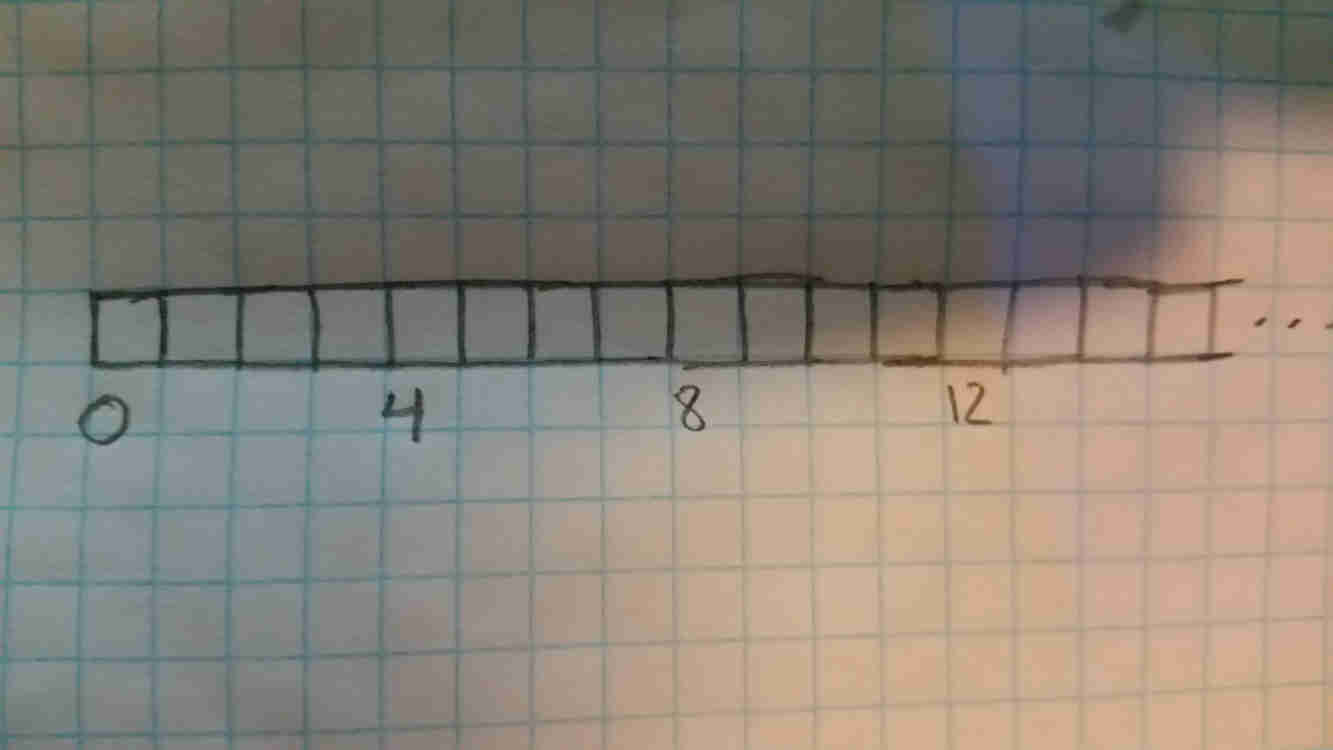 ...
0 4 8 12